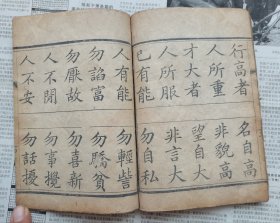 行高者 名自高
人所重 非貌高
才大者 望自大
人所服 非言大
己有能 勿自私
人有能 勿輕訾
勿諂富 勿驕貧
勿厭故 勿喜新
人不閒 勿事攪
人不安 勿話擾